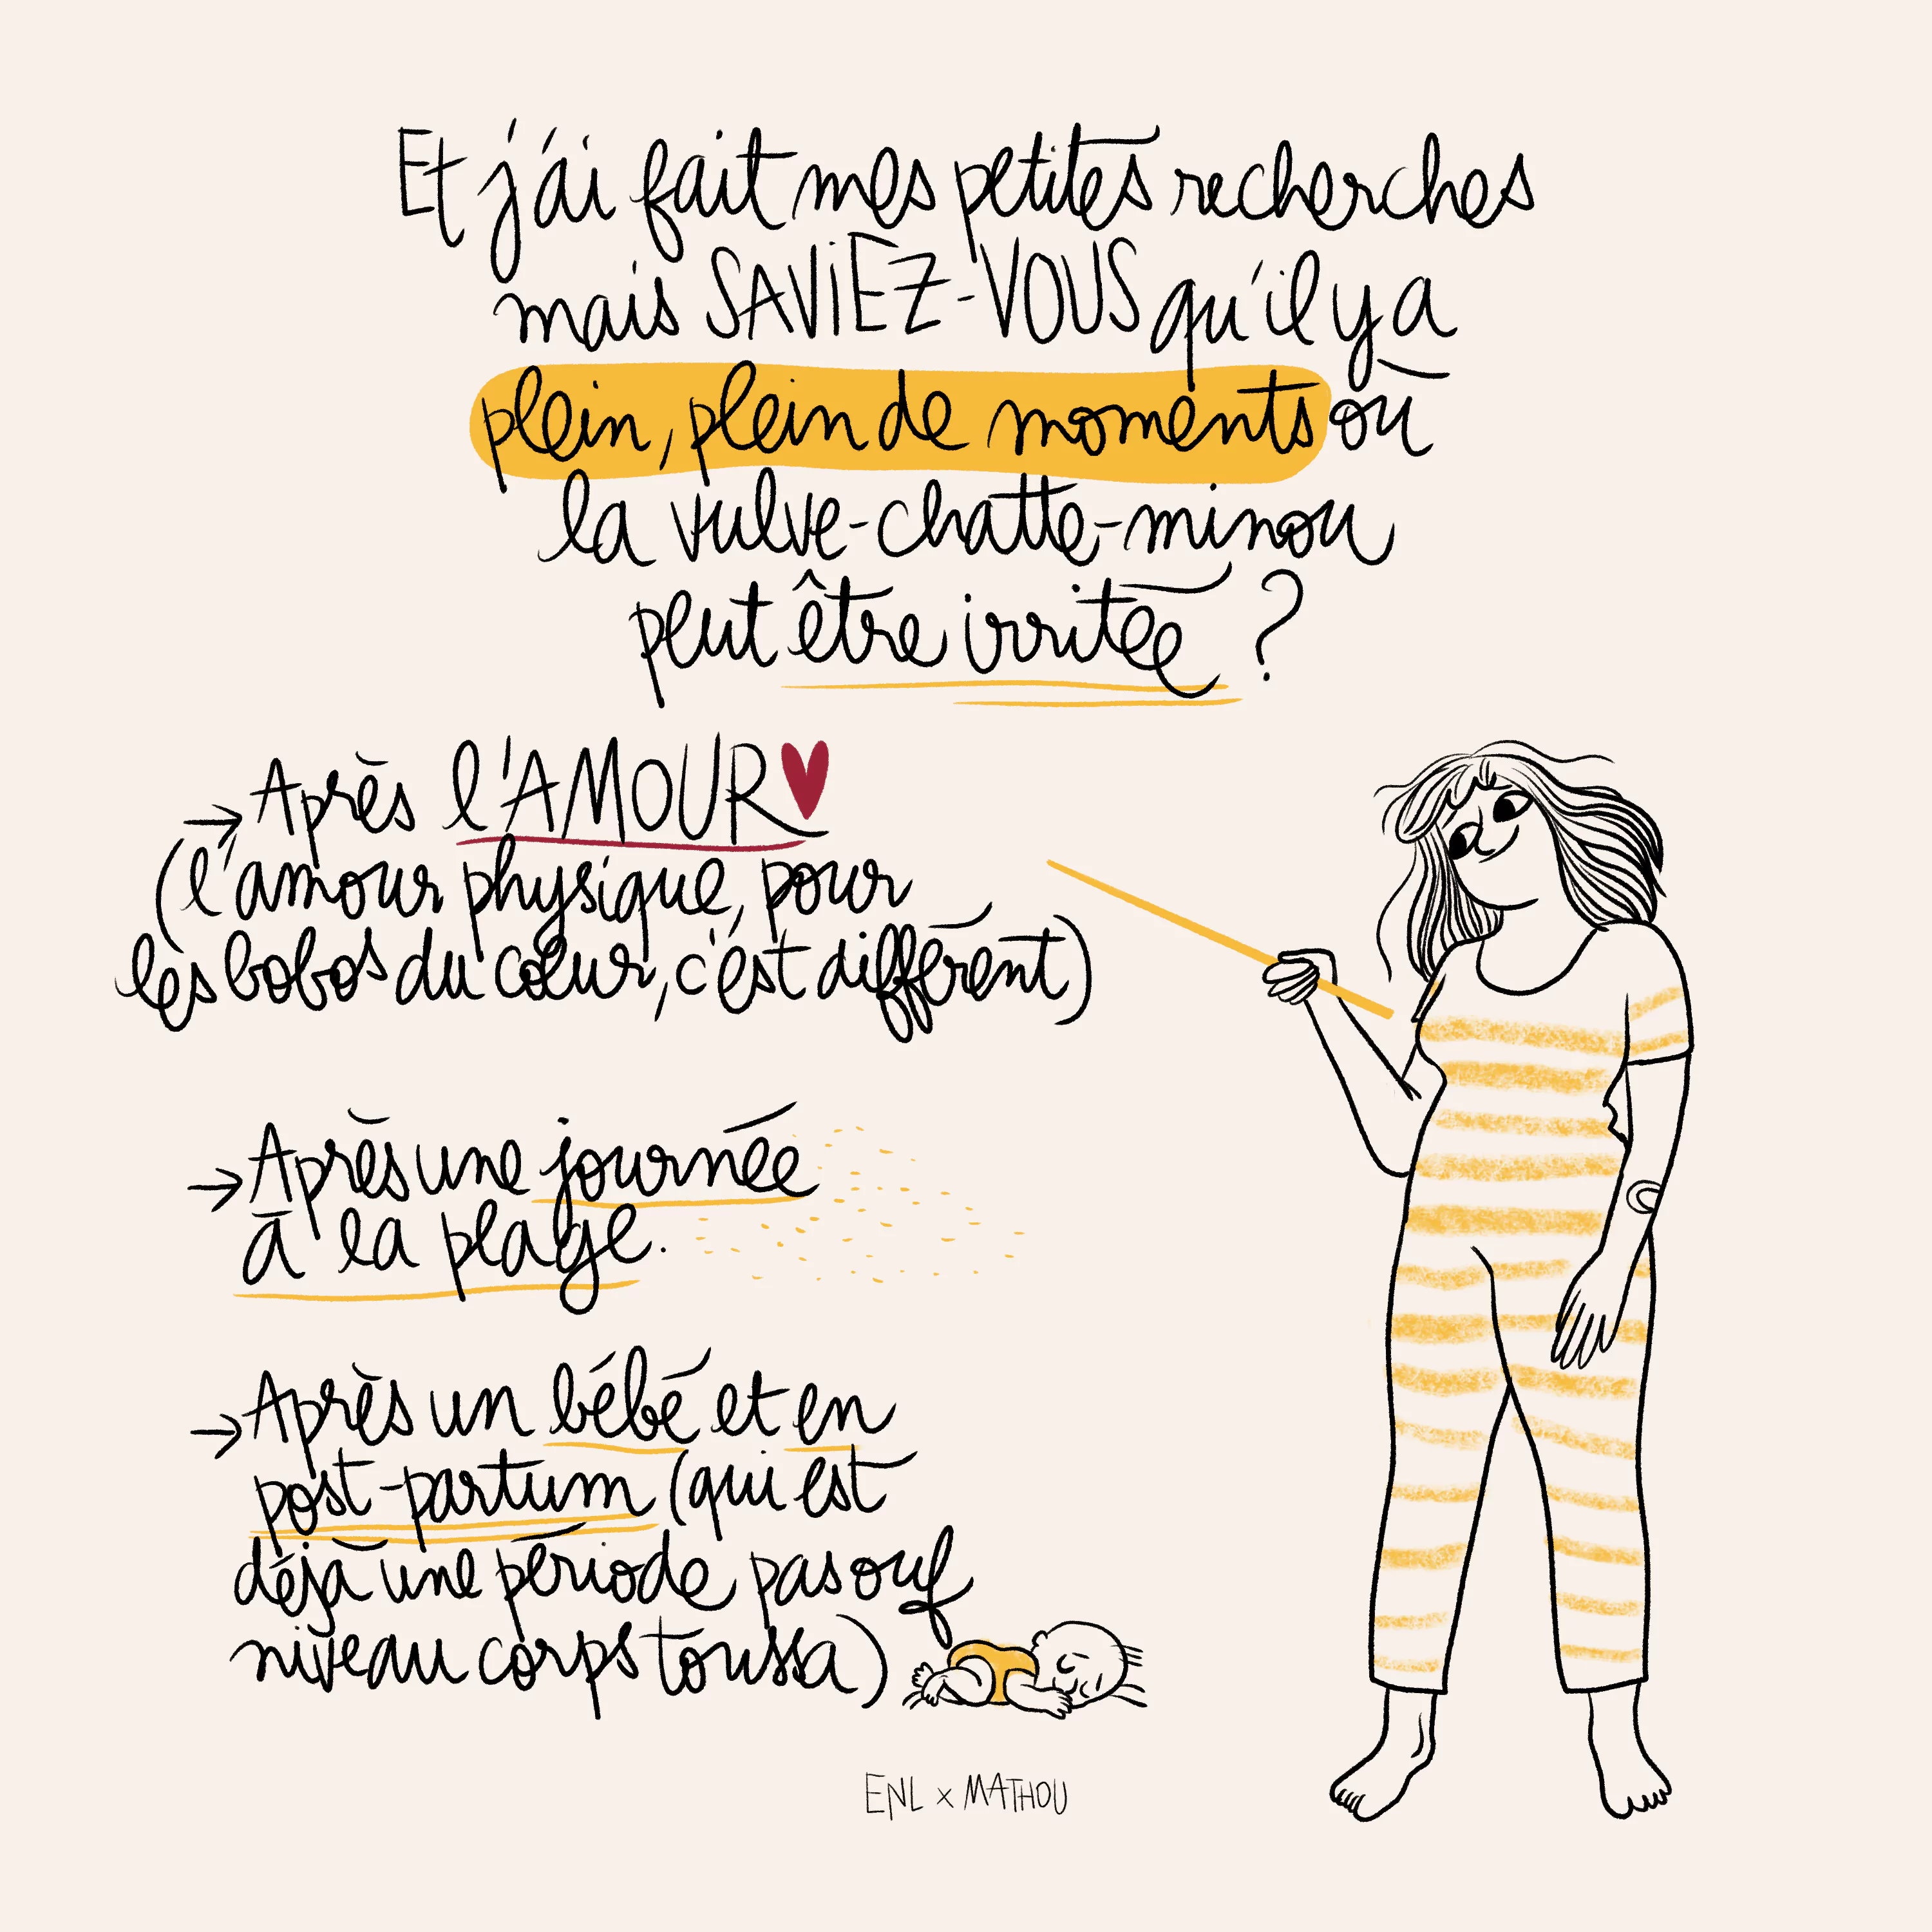 Et j'ai fait mes petites recherches
mais SAVIEZ-VOUS qu'il y a
plein, plein de moments où
la vulve-chatte-minou
peut être irritée ?
→ Après l'AMOUR ♥
(l'amour physique, pour
les bobos du cœur, c'est différent)
→ Après une journée
à la plage.
→ Après un bébé et en
post-partum (qui est
déjà une période pas ouf
niveau corps toussa)
ENL x MATHOU